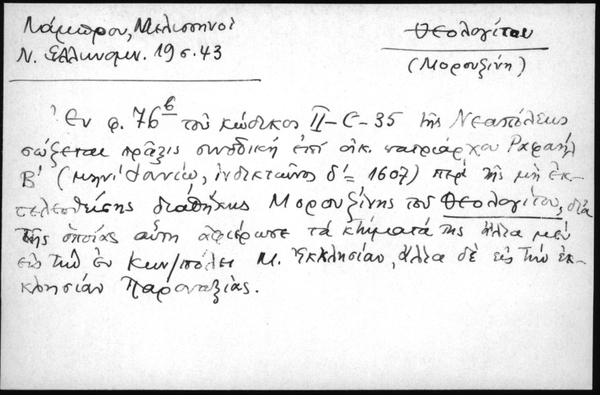 Λάμπρου, Μελισσηνοί
Ν. Ἑλληνομν. 19 σ. 43
Θεολογίτου
(Μορουζίνη)
Ἐν φ. 76β τοῦ κώδικος II-C-35 τῆς Νεαπόλεως
σώζεται πρᾶξις συνοδική ἐπί οἰκ. πατριάρχου Ραφαήλ
Β' (μηνί ἰανίῳ, ἰνδικτιῶνος δ' = 1607) περί τῆς μή ἐκ-
τελεσθείσης διαθήκης Μορουζίνης τοῦ Θεολογίτου, διά
τῆς ὁποίας αὕτη ἀφιέρωσε τά κτήματά της ἄλλα μέν
εἰς τήν ἐν Κων/πόλει Μ. Ἐκκλησίαν, ἄλλα δέ εἰς τήν ἐκ-
κλησίαν Παροναξίας.